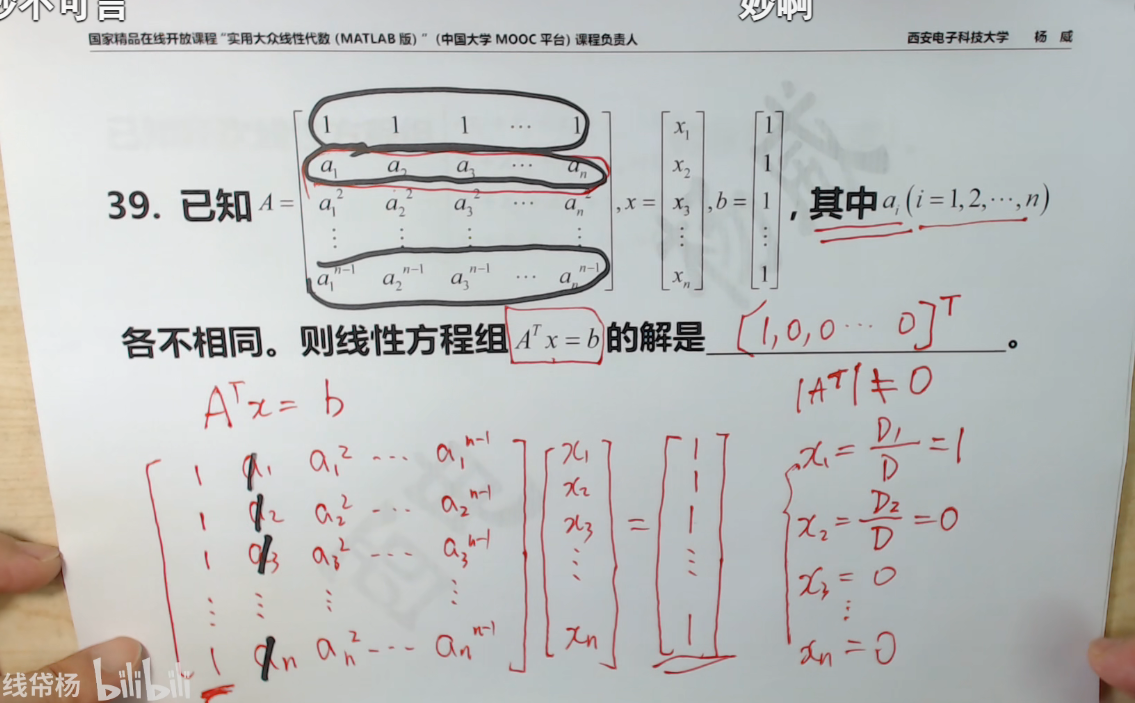 妙啊
国家精品在线开放课程“实用大众线性代数（MATLAB 版）”（中国大学 MOOC 平台）课程负责人 西安电子科技大学 杨 威
39. 已知 A = [1 1 1 ⋯ 1; a₁ a₂ a₃ ⋯ aₙ; a₁² a₂² a₃² ⋯ aₙ²; ⋮ ⋮ ⋮ ⋮; a₁ⁿ⁻¹ a₂ⁿ⁻¹ a₃ⁿ⁻¹ ⋯ aₙⁿ⁻¹], x = [x₁; x₂; x₃; ⋮; xₙ], b = [1; 1; 1; ⋮; 1], 其中 aᵢ (i = 1, 2, ⋯, n)
各不相同。则线性方程组 Aᵀ x = b 的解是 [1, 0, 0 ⋯ 0]ᵀ 。
Aᵀx = b
|Aᵀ| ≠ 0
[1 a₁ a₁² ⋯ a₁ⁿ⁻¹; 1 a₂ a₂² ⋯ a₂ⁿ⁻¹; 1 a₃ a₃² ⋯ a₃ⁿ⁻¹; ⋮ ⋮ ⋮ ⋮; 1 aₙ aₙ² ⋯ aₙⁿ⁻¹] [x₁; x₂; x₃; ⋮; xₙ] = [1; 1; 1; ⋮; 1]
x₁ = D₁/D = 1
x₂ = D₂/D = 0
x₃ = 0
⋮
xₙ = 0
线帒杨 bilibili